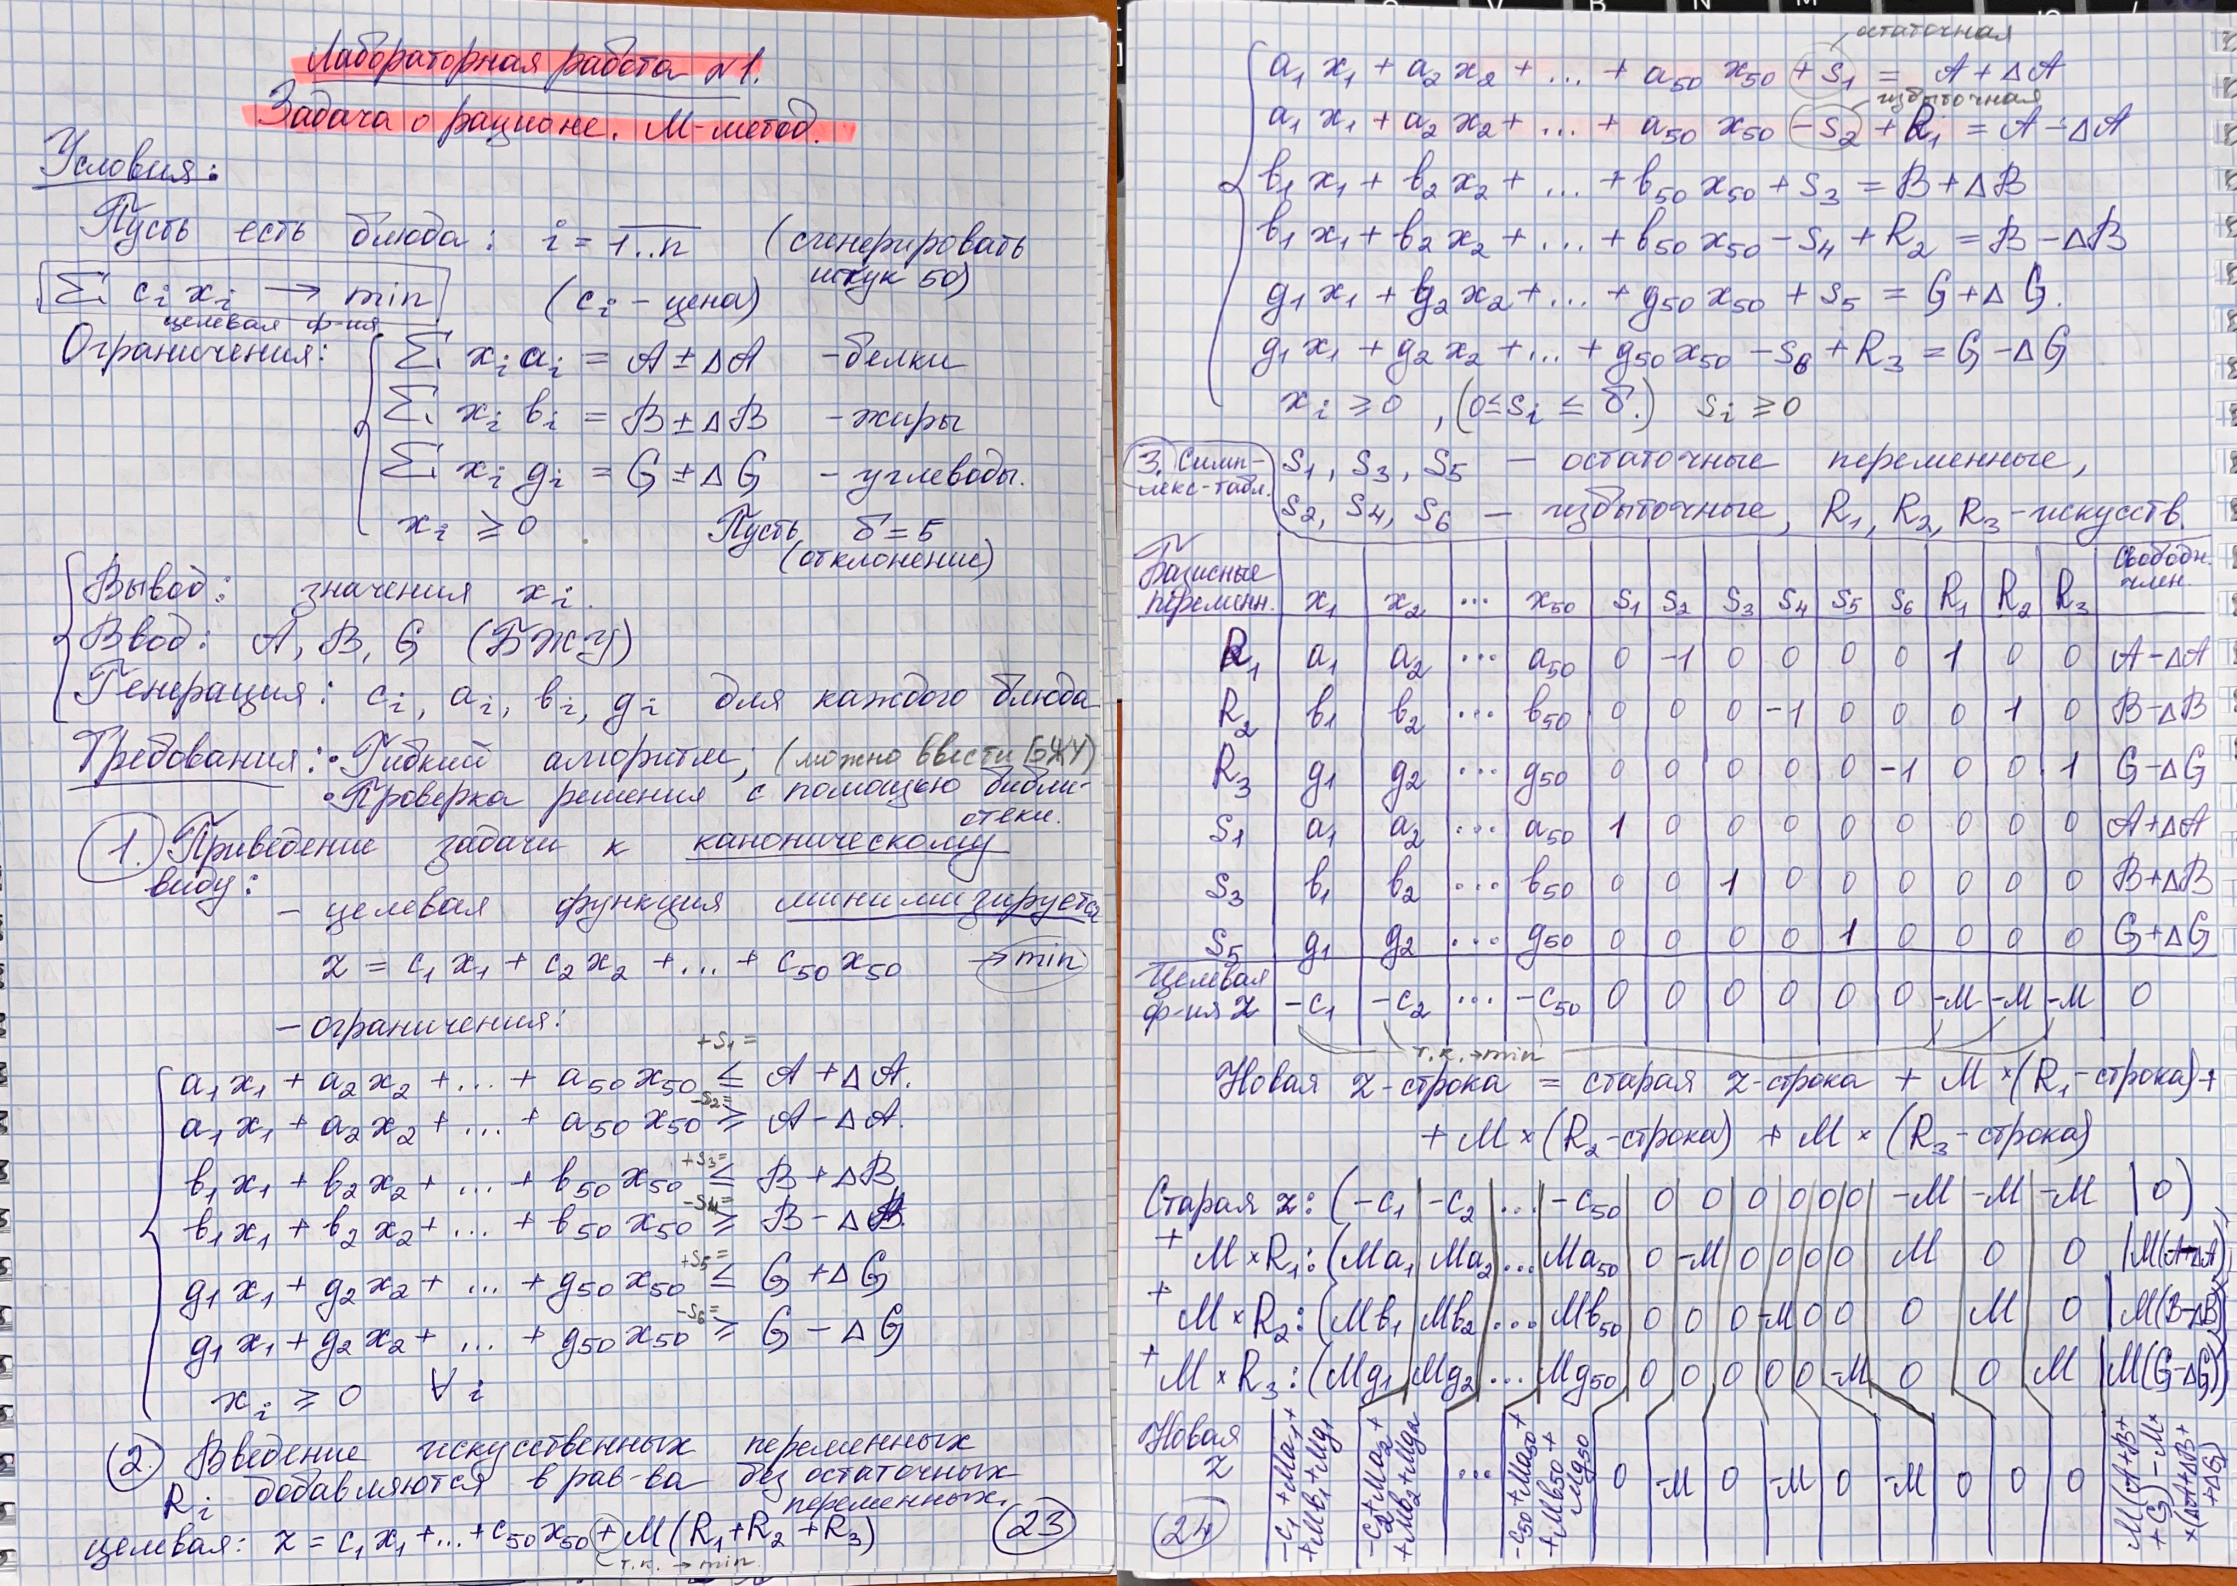 Лабораторная работа №1.
Задача о рационе. М-метод.
Условия:
Пусть есть блюда: i = 1..n (сгенерировать
штук 50)
Σ cᵢ xᵢ → min (cᵢ – цена)
целевая ф-ия
Ограничения:
Σ xᵢ aᵢ = A ± ΔA – белки
Σ xᵢ bᵢ = B ± ΔB – жиры
Σ xᵢ gᵢ = G ± ΔG – углеводы.
xᵢ ≥ 0 Пусть δ = 5
(отклонение)
Вывод: значения xᵢ.
Ввод: A, B, G (БЖУ)
Генерация: cᵢ, aᵢ, bᵢ, gᵢ для каждого блюда
Требования: • Гибкий алгоритм; (можно ввести БЖУ)
• Проверка решения с помощью библи-
отеки.
1. Приведение задачи к каноническому
виду:
– целевая функция минимизируется
z = c₁x₁ + c₂x₂ + ... + c₅₀x₅₀ → min
– ограничения:
+S₁ =
a₁x₁ + a₂x₂ + ... + a₅₀x₅₀ ≤ A + ΔA.
-S₂ =
a₁x₁ + a₂x₂ + ... + a₅₀x₅₀ ≥ A – ΔA.
+S₃ =
b₁x₁ + b₂x₂ + ... + b₅₀x₅₀ ≤ B + ΔB
-S₄ =
b₁x₁ + b₂x₂ + ... + b₅₀x₅₀ ≥ B – ΔB.
+S₅ =
g₁x₁ + g₂x₂ + ... + g₅₀x₅₀ ≤ G + ΔG
-S₆ =
g₁x₁ + g₂x₂ + ... + g₅₀x₅₀ ≥ G – ΔG
xᵢ ≥ 0 ∀i
2. Введение искусственных переменных
Rᵢ добавляются в рав-ва без остаточных
переменных.
целевая: z = c₁x₁ + ... + c₅₀x₅₀ + M(R₁ + R₂ + R₃)
т.к. → min
23
остаточная
a₁x₁ + a₂x₂ + ... + a₅₀x₅₀ + S₁ = A + ΔA
избыточная
a₁x₁ + a₂x₂ + ... + a₅₀x₅₀ – S₂ + R₁ = A – ΔA
b₁x₁ + b₂x₂ + ... + b₅₀x₅₀ + S₃ = B + ΔB
b₁x₁ + b₂x₂ + ... + b₅₀x₅₀ – S₄ + R₂ = B – ΔB
g₁x₁ + g₂x₂ + ... + g₅₀x₅₀ + S₅ = G + ΔG.
g₁x₁ + g₂x₂ + ... + g₅₀x₅₀ – S₆ + R₃ = G – ΔG
xᵢ ≥ 0 , (0 ≤ Sᵢ ≤ δ.) Sᵢ ≥ 0
3. Симп-
лекс-табл.
S₁, S₃, S₅ – остаточные переменные,
S₂, S₄, S₆ – избыточные, R₁, R₂, R₃ – искусств.
Базисные переменн. x₁ x₂ ... x₅₀ S₁ S₂ S₃ S₄ S₅ S₆ R₁ R₂ R₃ Свободн. член.
R₁ a₁ a₂ ... a₅₀ 0 -1 0 0 0 0 1 0 0 A-ΔA
R₂ b₁ b₂ ... b₅₀ 0 0 0 -1 0 0 0 1 0 B-ΔB
R₃ g₁ g₂ ... g₅₀ 0 0 0 0 0 -1 0 0 1 G-ΔG
S₁ a₁ a₂ ... a₅₀ 1 0 0 0 0 0 0 0 0 A+ΔA
S₃ b₁ b₂ ... b₅₀ 0 0 1 0 0 0 0 0 0 B+ΔB
S₅ g₁ g₂ ... g₅₀ 0 0 0 0 1 0 0 0 0 G+ΔG
Целевая ф-ия z -c₁ -c₂ ... -c₅₀ 0 0 0 0 0 0 -M -M -M 0
т.к. → min
Новая z-строка = старая z-строка + M × (R₁-строка) +
+ M × (R₂-строка) + M × (R₃-строка)
Старая z: (-c₁ | -c₂ | ... | -c₅₀ | 0 0 0 0 0 0 -M -M -M | 0)
+ M × R₁: (Ma₁ Ma₂ ... Ma₅₀ 0 -M 0 0 0 0 M 0 0 | M(A-ΔA))
+ M × R₂: (Mb₁ Mb₂ ... Mb₅₀ 0 0 0 -M 0 0 0 M 0 | M(B-ΔB))
+ M × R₃: (Mg₁ Mg₂ ... Mg₅₀ 0 0 0 0 0 -M 0 0 M | M(G-ΔG))
Новая z -c₁+Ma₁+ +Mb₁+Mg₁ -c₂+Ma₂+ +Mb₂+Mg₂ ... -c₅₀+Ma₅₀+ +Mb₅₀+ Mg₅₀ 0 -M 0 -M 0 -M 0 0 0 M(A+B+ +G)-M× ×(ΔA+ΔB+ +ΔG)
24